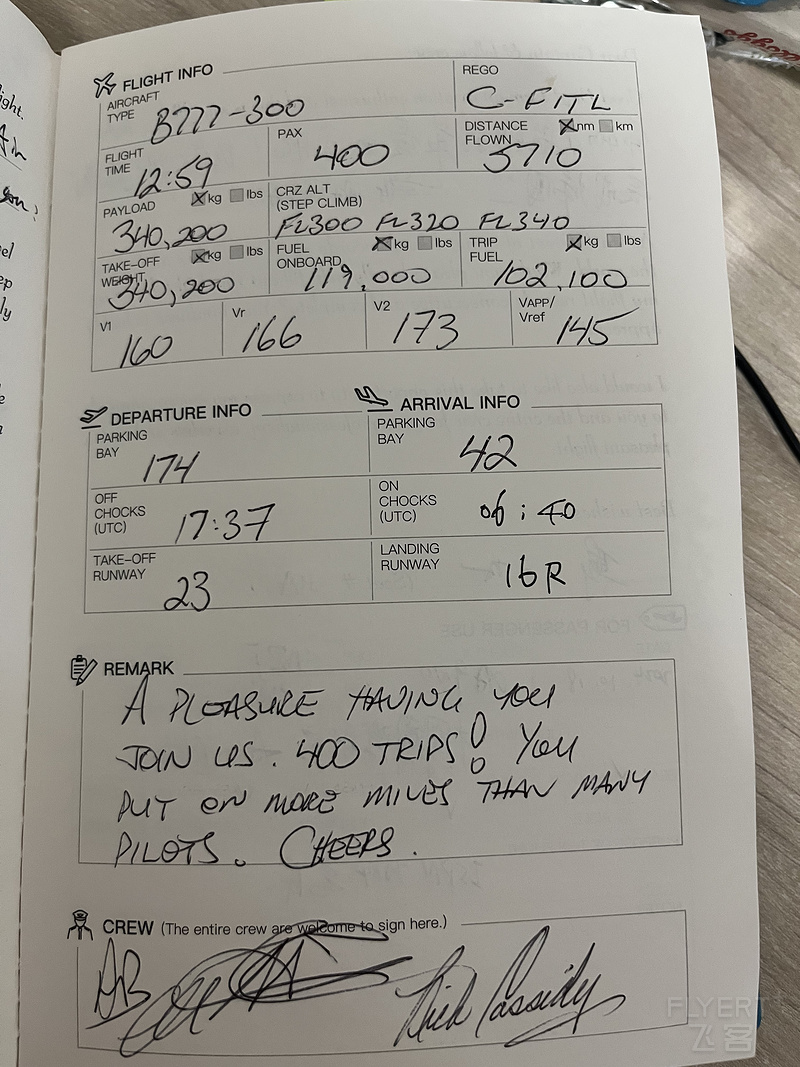 ight.
FLIGHT INFO
AIRCRAFT TYPE B777-300
REGO C-FITL
FLIGHT TIME 12:59
PAX 400
DISTANCE FLOWN nm km 5710
PAYLOAD kg lbs 340,200
CRZ ALT (STEP CLIMB) FL300 FL320 FL340
TAKE-OFF WEIGHT kg lbs 340,200
FUEL ONBOARD kg lbs 119,000
TRIP FUEL kg lbs 102,100
V1 160
Vr 166
V2 173
VAPP/ Vref 145
DEPARTURE INFO
PARKING BAY 174
OFF CHOCKS (UTC) 17:37
TAKE-OFF RUNWAY 23
ARRIVAL INFO
PARKING BAY 42
ON CHOCKS (UTC) 06:40
LANDING RUNWAY 16R
REMARK
A PLEASURE HAVING YOU
JOIN US. 400 TRIPS! YOU
PUT ON MORE MILES THAN MANY
PILOTS. CHEERS.
CREW (The entire crew are welcome to sign here.)
Nick Cassidy
FLYERT
飞客